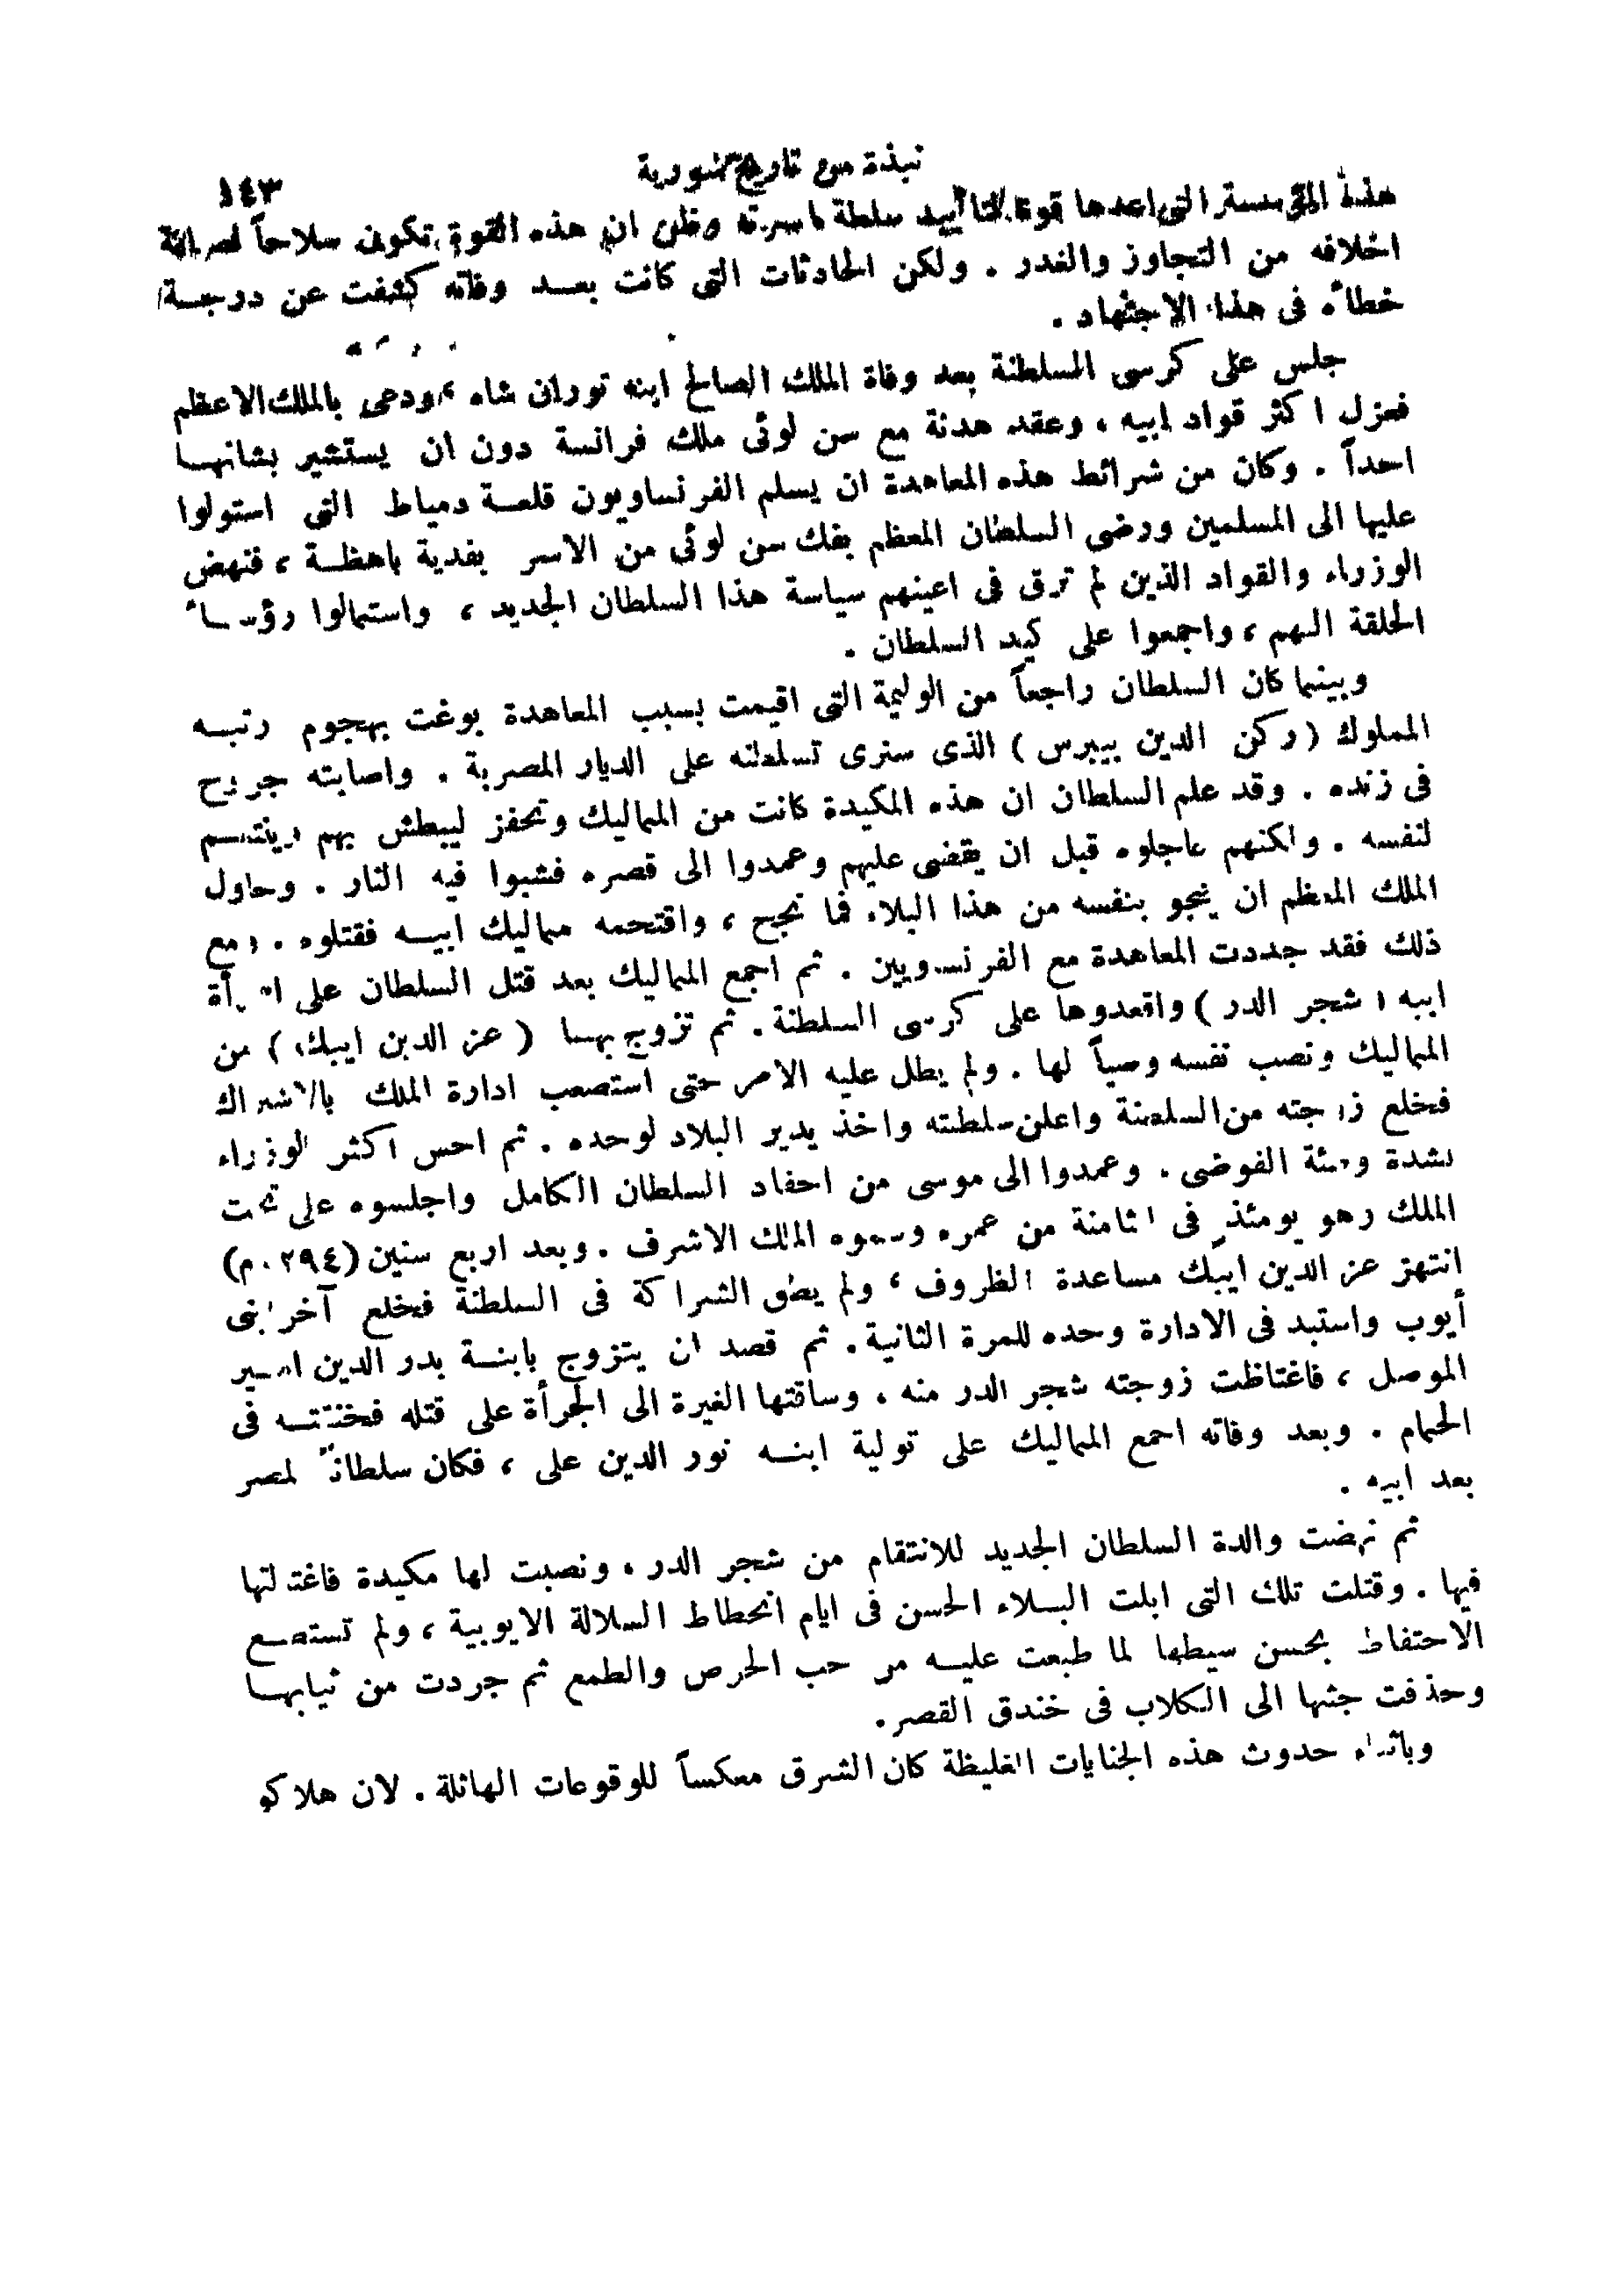 نبذة من تاريخ سورية
١٤٣
هذه المؤسسة التى اعدها قوة لتأييد سلطة اسرته وظن ان هذه القوة تكون سلاحاً لصيانة
اخلافه من التجاوز والغدر . ولكن الحادثات التى كانت بعـد وفاته كشفت عن درجـة
خطأه فى هذا الاجتهاد .
جلس على كرسى السلطنة بعد وفاة الملك الصالح ابنه توران شاه ، ودعى بالملك الاعظم
فعزل اكثر قواد ابيه ، وعقد هدنة مع سن لوئى ملك فرانسة دون ان يستشير بشانهـا
احداً . وكان من شرائط هذه المعاهدة ان يسلم الفرنساويون قلعـة دمياط التى استولوا
عليها الى المسلمين ورضى السلطان المعظم بفك سن لوئى من الاسر بفدية باهظـة ، فنهض
الوزراء والقواد الذين لم ترق فى اعينهم سياسة هذا السلطان الجديد ، واستمالوا رؤسـاء
الحلقة اليهم ، واجمعوا على كيد السلطان .
وبينما كان السلطان راجعاً من الوليمة التى اقيمت بسبب المعاهدة بوغت بهجوم رتبـه
المملوك ( ركن الدين بيبرس ) الذى سنرى تسلطنه على الديار المصرية . واصابته جروح
فى زنده . وقد علم السلطان ان هذه المكيدة كانت من المماليك وتحفز ليبطش بهم وينتقـم
لنفسه . ولكنهم عاجلوه قبل ان يقضى عليهم وعمدوا الى قصره فشبوا فيه النار . وحاول
الملك المعظم ان ينجو بنفسه من هذا البلاء فما نجح ، واقتحمه مماليك ابيـه فقتلوه . ومع
ذلك فقد جددت المعاهدة مع الفرنسويين . ثم اجمع المماليك بعد قتل السلطان على امرأة
ابيه ( شجر الدر ) واقعدوها على كرسى السلطنة . ثم تزوج بهـا ( عز الدين ايبك ) من
المماليك ونصب نفسه وصياً لها . ولم يطل عليه الامر حتى استصعب ادارة الملك بالاشتراك
فخلع زوجته من السلطنة واعلن سلطنته واخذ يدير البلاد لوحده . ثم احس اكثر الوزراء
بشدة وطئة الفوضى . وعمدوا الى موسى من احفاد السلطان الكامل واجلسوه على تخت
الملك وهو يومئذ فى الثامنة من عمره وسموه الملك الاشرف . وبعد اربع سنين
انتهز عز الدين ايبك مساعدة الظروف ، ولم يطق الشراكة فى السلطنة فخلع آخر بنى
أيوب واستبد فى الادارة وحده للمرة الثانية . ثم قصد ان يتزوج بابنـة بدر الدين امـير
الموصل ، فاغتاظت زوجته شجر الدر منه . وساقتها الغيرة الى الجرأة على قتله فخنقتـه فى
الحمام . وبعد وفاته اجمع المماليك على تولية ابنـه نور الدين على ، فكان سلطاناً لمصر
بعد ابيه .
ثم نهضت والدة السلطان الجديد للانتقام من شجر الدر . ونصبت لها مكيدة فاغتالتها
فيها . وقتلت تلك التى ابلت البـلاء الحسن فى ايام انحطاط السلالة الايوبية ، ولم تستطـع
الاحتفاظ بحسن سيطها لما طبعت عليـه من حب الحرص والطمع ثم جردت من ثيابهـا
وحذفت جثها الى الكلاب فى خندق القصر .
وباثناء حدوث هذه الجنايات الغليظة كان الشرق معكساً للوقوعات الهائلة . لان هلاكو